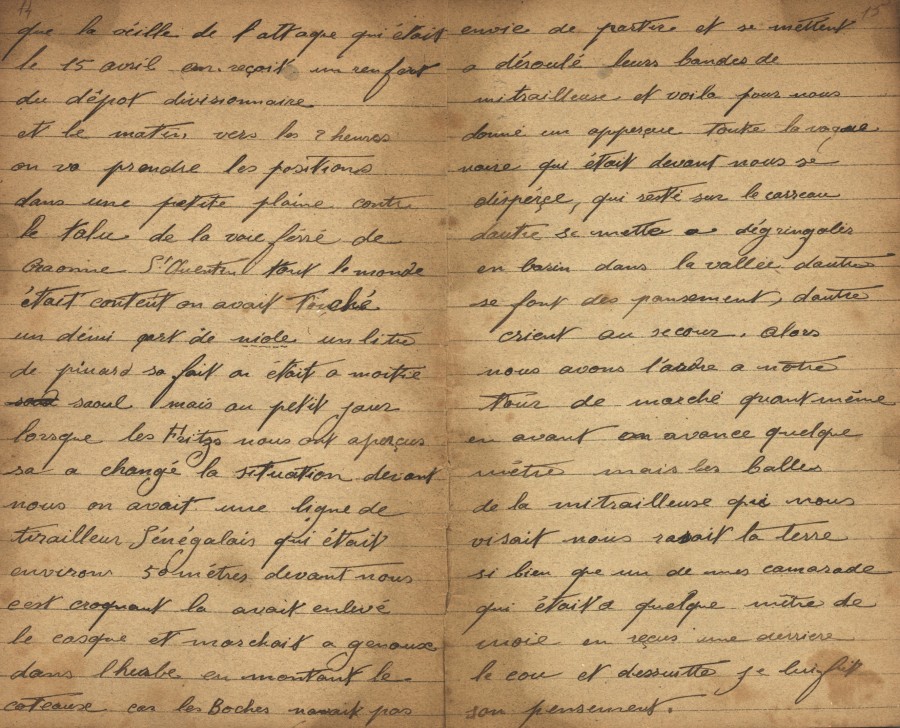 14
que la veille de l'attaque qui était
le 15 avril on reçoit un renfort
du dépot divisionnaire
et le matin vers les 2 heures
on va prendre les positions
dans une petite plaine contre
le talu de la voie férré de
Craonne St Quentin tout le monde
était content on avait touché
un démi qart de niole un litre
de pinard sa fait on était a moitie
saoul mais au petit jour
lorsque les Fritzs nous ont aperçus
sa a changé la situation devant
nous on avait une ligne de
tirailleur Sénégalais qui était
environs 50 mètres devant nous
cest croquant la avait enlevé
le casque et marchait a genoux
dans l'herbe en montant le
coteaux car les Boches navait pas
15
envie de partir et se mettent
a déroulé leurs bandes de
mitrailleuse et voila pour nous
donné un apperçue toute la vague
noire qui était devant nous se
dispérçe, qui resté sur le carreau
dautre se mette a dégringoler
en basin dans la vallée dautre
se font des pansement, dautre
crient au secour. alors
nous avons l'ordre a notre
tour de marché quant même
en avant on avance quelque
mètre mais les balles
de la mitrailleuse qui nous
visait nous rasait la terre
si bien que un de mes camarade
qui était a quelque mètre de
moie en reçus une derriere
le cou et dessuitte je lui fit
son pensement.